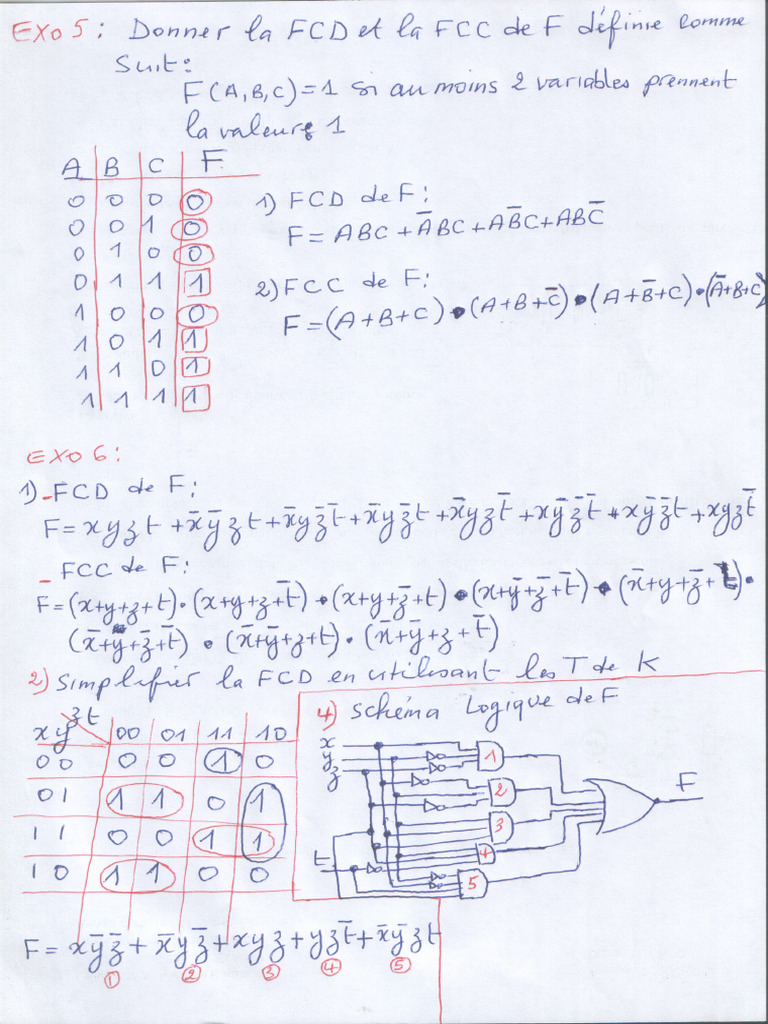 EXO 5 : Donner la FCD et la FCC de F définie comme
Suit :
F(A,B,C) = 1 si au moins 2 variables prennent
la valeur 1
A B C F
0 0 0 0
0 0 1 0
0 1 0 0
0 1 1 1
1 0 0 0
1 0 1 1
1 1 0 1
1 1 1 1
1) FCD de F :
F = ABC + A̅BC + AB̅C + ABC̅
2) FCC de F :
F = (A+B+C) • (A+B+C̅) • (A+B̅+C) • (A̅+B+C)
EXO 6 :
1) - FCD de F :
F = xyzt + x̅y̅zt + x̅yz̅t̅ + x̅yz̅t + x̅yzt̅ + xy̅z̅t̅ + xy̅z̅t + xyzt̅
- FCC de F :
F = (x+y+z+t) • (x+y+z+t̅) • (x+y+z̅+t) • (x+y̅+z̅+t̅) • (x̅+y+z̅+t) •
(x̅+y̅+z̅+t̅) • (x̅+y̅+z+t) • (x̅+y̅+z+t̅)
2) Simplifier la FCD en utilisant les T de K
xy zt 00 01 11 10
00 0 0 1 0
01 1 1 0 1
11 0 0 1 1
10 1 1 0 0
4) Schéma Logique de F
x
y
z
t
1
2
3
4
5
F
F = xy̅z̅ + x̅yz̅ + xyz + yzt̅ + x̅y̅zt
① ② ③ ④ ⑤